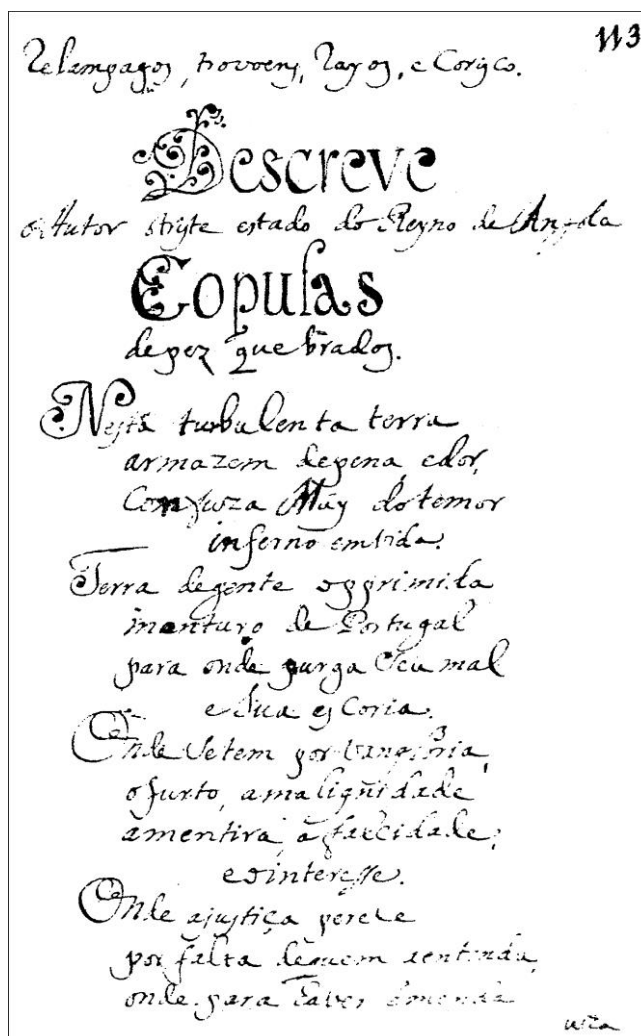 113
Relampagos, trovoens, Rayos, e Corisco.
Descreve
o Autor o triste estado do Reyno de Angola
Copulas
de pez quebrados.
Nesta turbulenta terra
armazem de pena e dor,
Confuza May do temor
inferno em vida.
Terra de gente opprimida
monturo de Portugal
para onde purga seu mal
e sua escoria.
Onde se tem por vangloria,
o furto, a malignidade
a mentira, a falcidade,
e o interesse.
Onde a justiça perece
por falta de quem a entenda,
onde para haver emenda